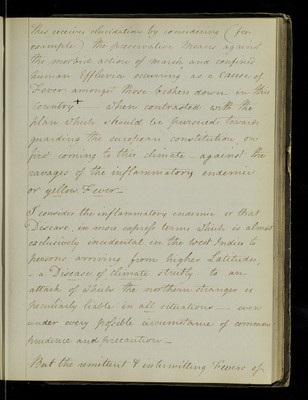 this receives elucidation by considering (for
example) the preservative means against
the morbid action of marsh and confined
human Effluvia occurring as a Cause of
Fever amongst those Esthen down in this
Country + — when contrasted with the
plan which should be pursued towards
guarding the european constitution on
first coming to this climate — against the
ravages of the inflammatory endemic
or yellow Fever —
I consider the inflammatory endemic or that
Disease, in more express terms which is almost
exclusively incidental in the West Indies to
persons arriving from higher Latitudes,
— a Disease of climate strictly — to an
attack of which the northern stranger is
peculiarly liable in all situations — even
under every possible circumstance of common
prudence and precaution —
But the remittent & intermitting Fevers of